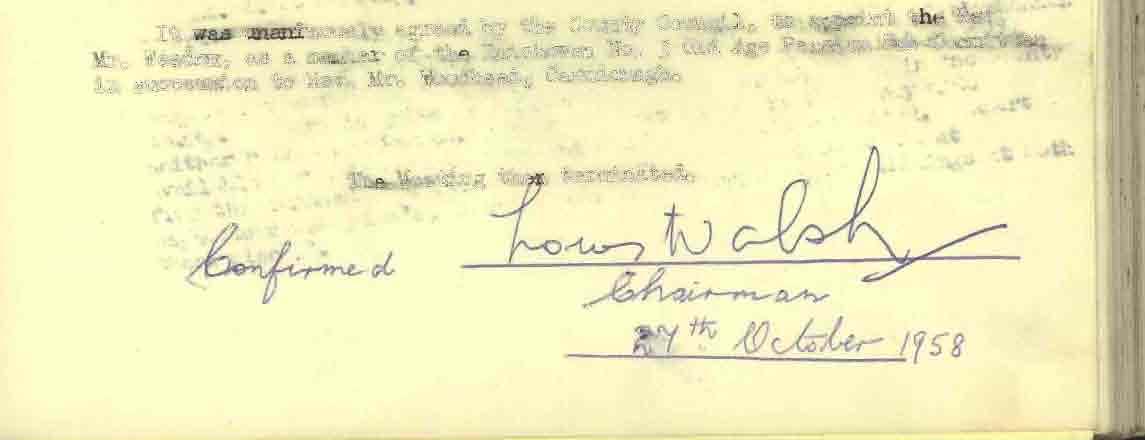 It was unanimously agreed by the County Council, to appoint the Rev.
Mr. as a member of the Inishowen No. Old Age Pension Sub-Committee
in succession to Rev. Mr. Woodhead, Carndonagh.
The Meeting then terminated.
Confirmed Louis Walsh
Chairman
27th October 1958